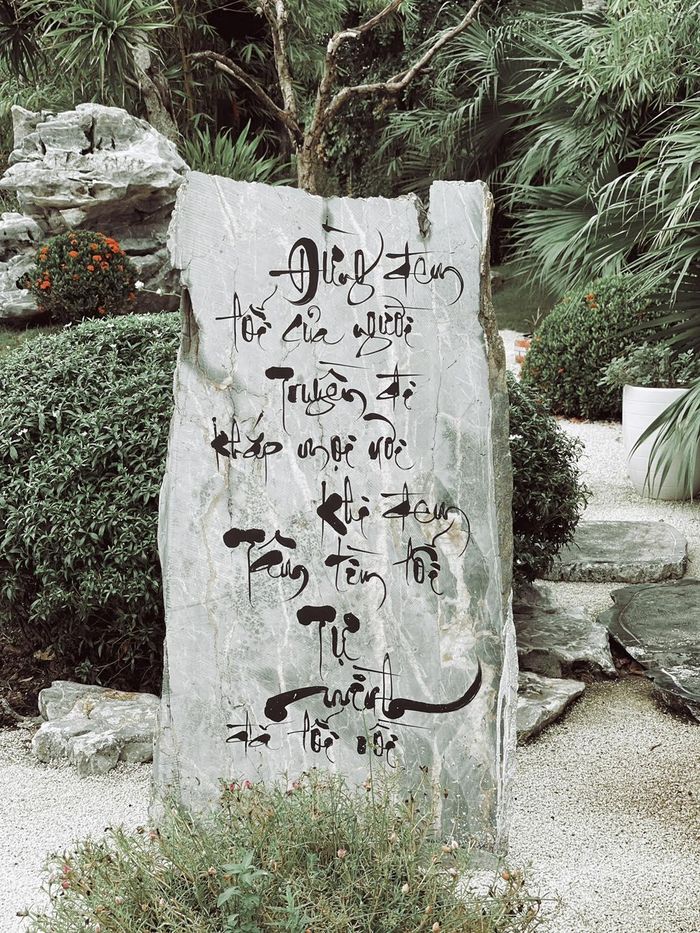 Đừng đem
lỗi của người
Truyền đi
khắp mọi nơi
khi đem
Tâm tìm lỗi
Tự
mình
đã lỗi rồi